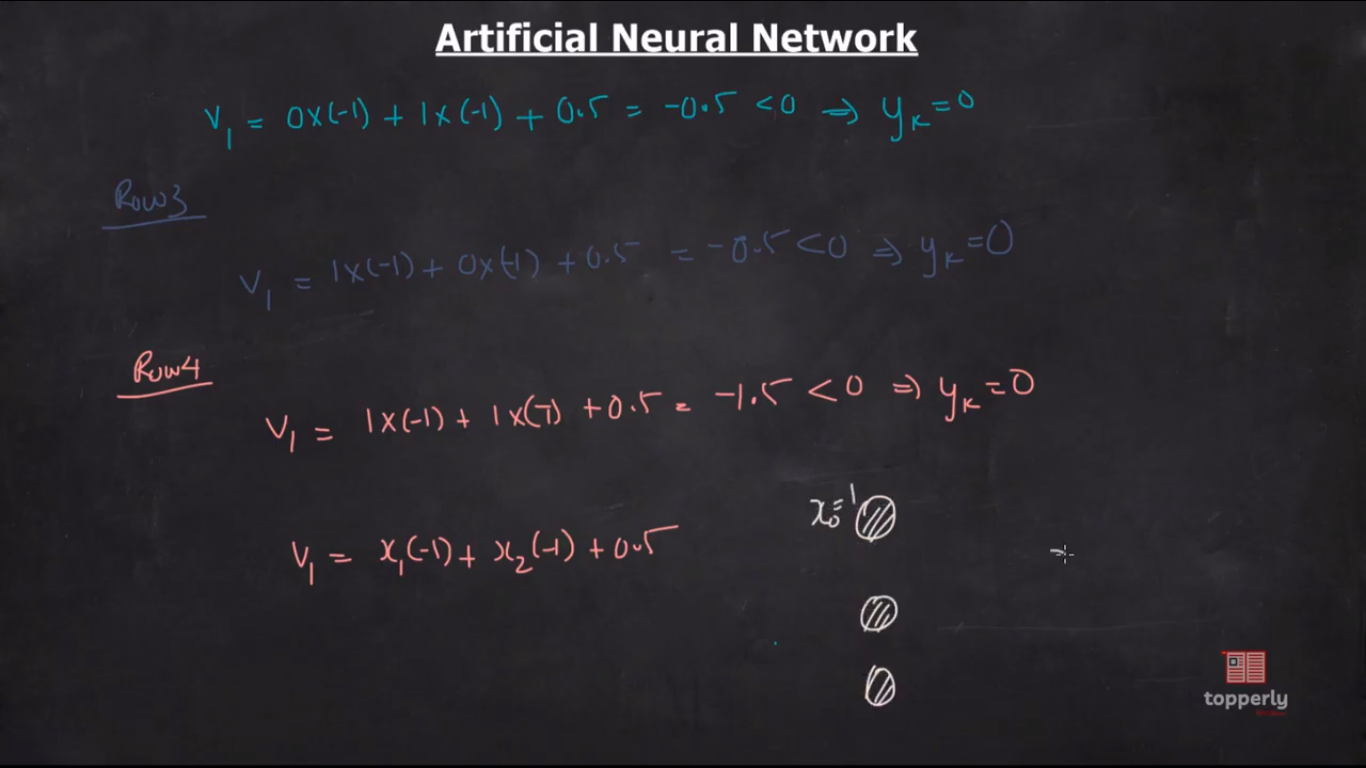 Artificial Neural Network
V₁ = 0x(-1) + 1x(-1) + 0.5 = -0.5 <0 ⇒ yₖ=0
Row3
V₁ = 1x(-1) + 0x(-1) + 0.5 = -0.5 <0 ⇒ yₖ=0
Row4
V₁ = 1x(-1) + 1x(-1) + 0.5 = -1.5 <0 ⇒ yₖ=0
x₀=1
V₁ = x₁(-1) + x₂(-1) + 0.5
topperly